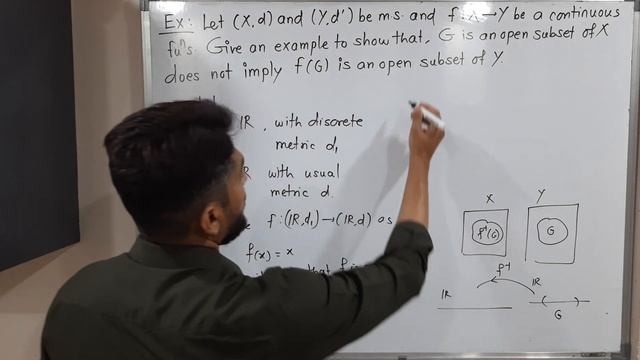 Ex: Let (X, d) and (Y, d') be m.s. and f: X → Y be a continuous
fuⁿs. Give an example to show that, G is an open subset of X
does not imply f(G) is an open subset of Y.
IR, with discrete
metric d₁
with usual
metric d.
f: (IR, d₁) → (IR, d) as
f(x) = x
that f is
X Y
f⁻¹(G) G
f⁻¹
IR IR
G